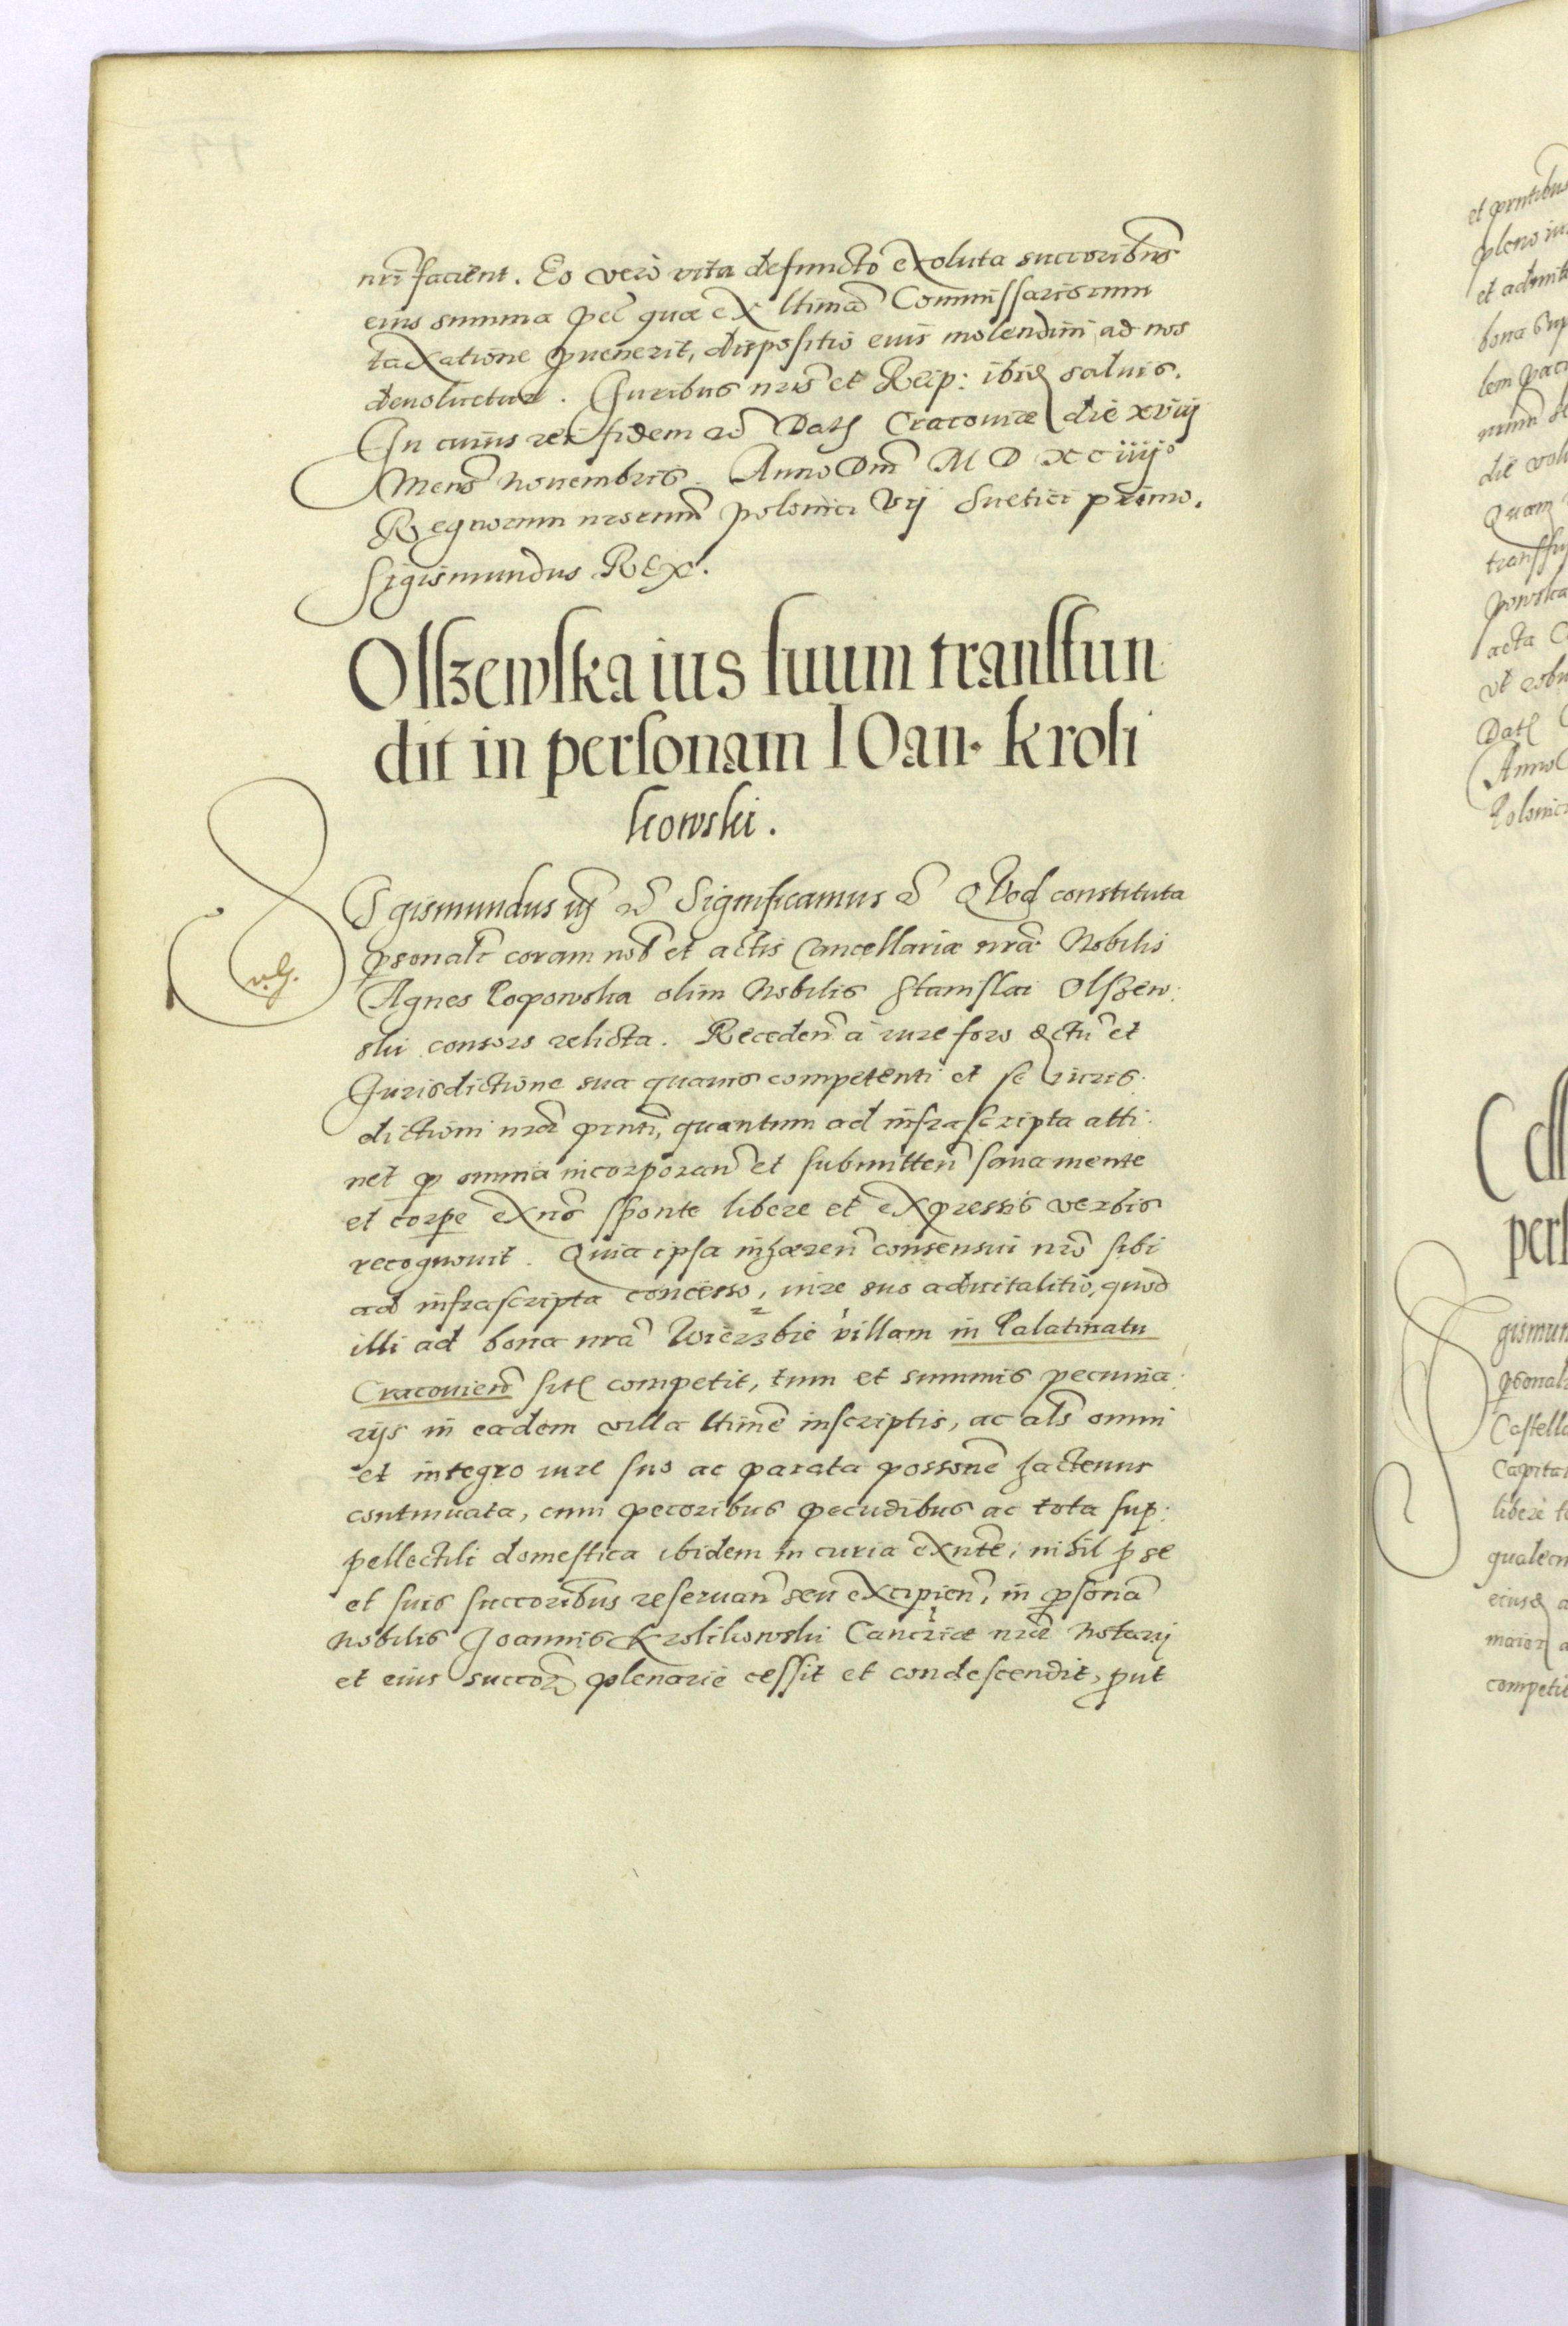 nri facient. Eo vero vita defuncto exoluta succoribus
eius summa pec quae ex ltima Commissariorum
taxatione pvenerit, dispositio eius molendini ad nos
devoluetur. Iuribus nris et Reip: ibid salvis.
In cuius rei fidem Dat Cracoviae die xviij
Mens Novembris. Anno Dni M D XC iiijo
Regnorum nrorum Polonici vij Suetici primo.
Sigismundus Rex.
Olszewska ius suum transfun
dit in personam IOan. Kroli
kowski.
Sigismundus iij Significamus Quod constituta
psonalr coram nob et actis Cancellariae nrae Nobilis
v. G.
Agnes Popowska olim Nobilis Stanislai Olszew:
ski consors relicta. Receden a iure foro et
Iurisdictione sua quavis competenti et se iuris:
dictioni nrae prnti, quantum ad infrascripta atti:
net p omnia incorporan et submitten sana mente
et corpe exns sponte libere et expressis verbis
recognovit. Quia ipsa inhaeren consensui nro sibi
ad infrascripta concesso, iure suo advitalitio, quod
illi ad bona nra Wierzbie villam in Palatinatu
Cracovien sit competit, tum et summis pecunia:
rijs in eadem villa ltime inscriptis, ac als omni
et integro iure suo ac parata possone hactenus
continuata, cum pecoribus pecudibus ac tota sup:
pellectili domestica ibidem in curia exnte, nihil p se
et suis succoribus reservan seu excipien, in psona
Nobilis Joannis Krolikowski Cancriae nrae Notarij
et eius succor plenarie cessit et condescendit, put
et prntibus
pleno iu
et admitt
bona sup
lem pac
nimm
die
Quam
transfu
powska
acta C
ut robu
Dat
Anno
Polonici
pers
gismun
psonal
Castella
Capita
libere
qualecn
eiusd
maior
competit